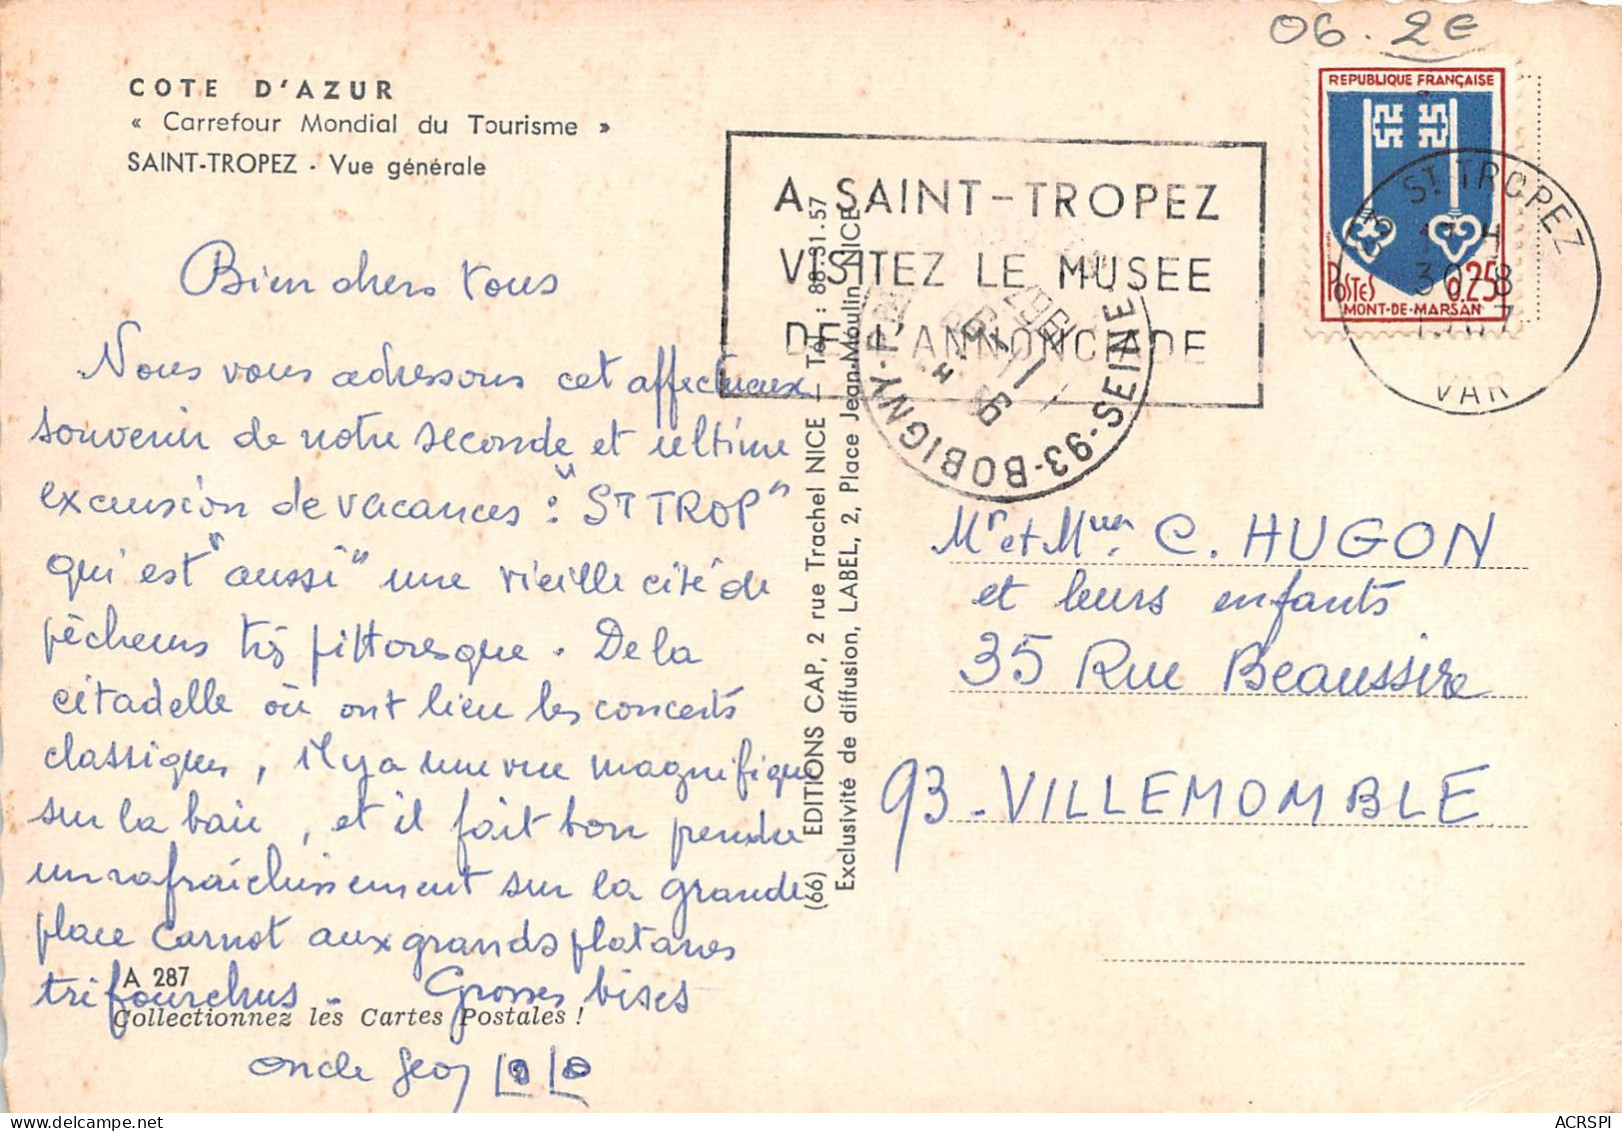 06. 2€
COTE D'AZUR
« Carrefour Mondial du Tourisme »
SAINT-TROPEZ - Vue générale
Bien chers tous
Nous vous adressons cet affectueux
souvenir de notre seconde et ultime
excursion de vacances : "ST TROP"
qui est "aussi" une vieille cité de
pêcheurs très pittoresque. De la
citadelle où ont lieu les concerts
classiques, il y a une vue magnifique
sur la baie, et il fait bon prendre
un rafraîchissement sur la grande
place Carnot aux grands platanes
trifourchus. Grosses bises
A 287
Collectionnez les Cartes Postales !
oncle Geo
(66) EDITIONS CAP, 2 rue Trachel NICE — Tél : 88.31.57
Exclusivité de diffusion, LABEL, 2, Place Jean-Moulin NICE
A SAINT-TROPEZ
VISITEZ LE MUSEE
DE L'ANNONCIADE
93-BOBIGNY-
93-SEINE
1967
REPUBLIQUE FRANÇAISE
POSTES 0.25
MONT-DE-MARSAN
83 ST. TROPEZ
17 H
30-8
1967
VAR
Mr et Mme C. HUGON
et leurs enfants
35 Rue Beaussire
93-VILLEMOMBLE
ACRSPI